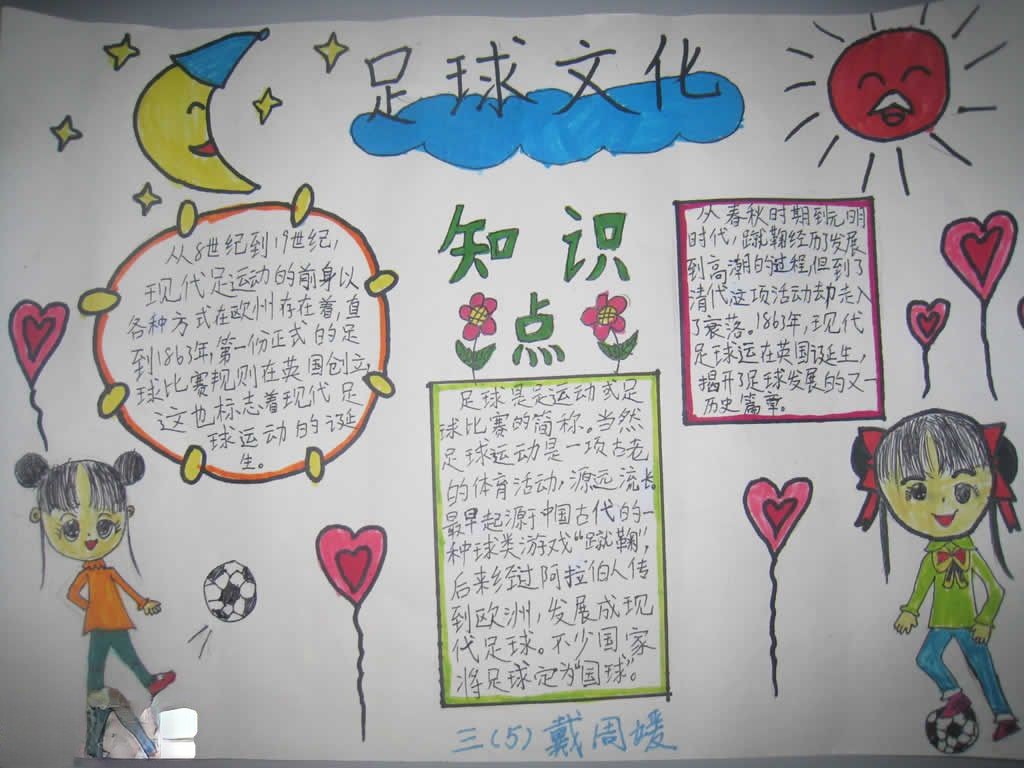 足球文化
知识点
从8世纪到19世纪,
现代足运动的前身以
各种方式在欧州存在着,直
到1863年,第一份正式的足
球比赛规则在英国创立,
这也标志着现代足
球运动的诞
生。
足球是足运动或足
球比赛的简称。当然
足球运动是一项古老
的体育活动,源远流长
最早起源于中国古代的一
种球类游戏“蹴鞠”,
后来经过阿拉伯人传
到欧洲,发展成现
代足球。不少国家
将足球定为“国球”。
从春秋时期到元明
时代,蹴鞠经历了发展
到高潮的过程,但到了
清代这项活动却走入
了衰落。1863年,现代
足球运在英国诞生,
揭开了足球发展的又一
历史篇章。
三(5)戴周媛